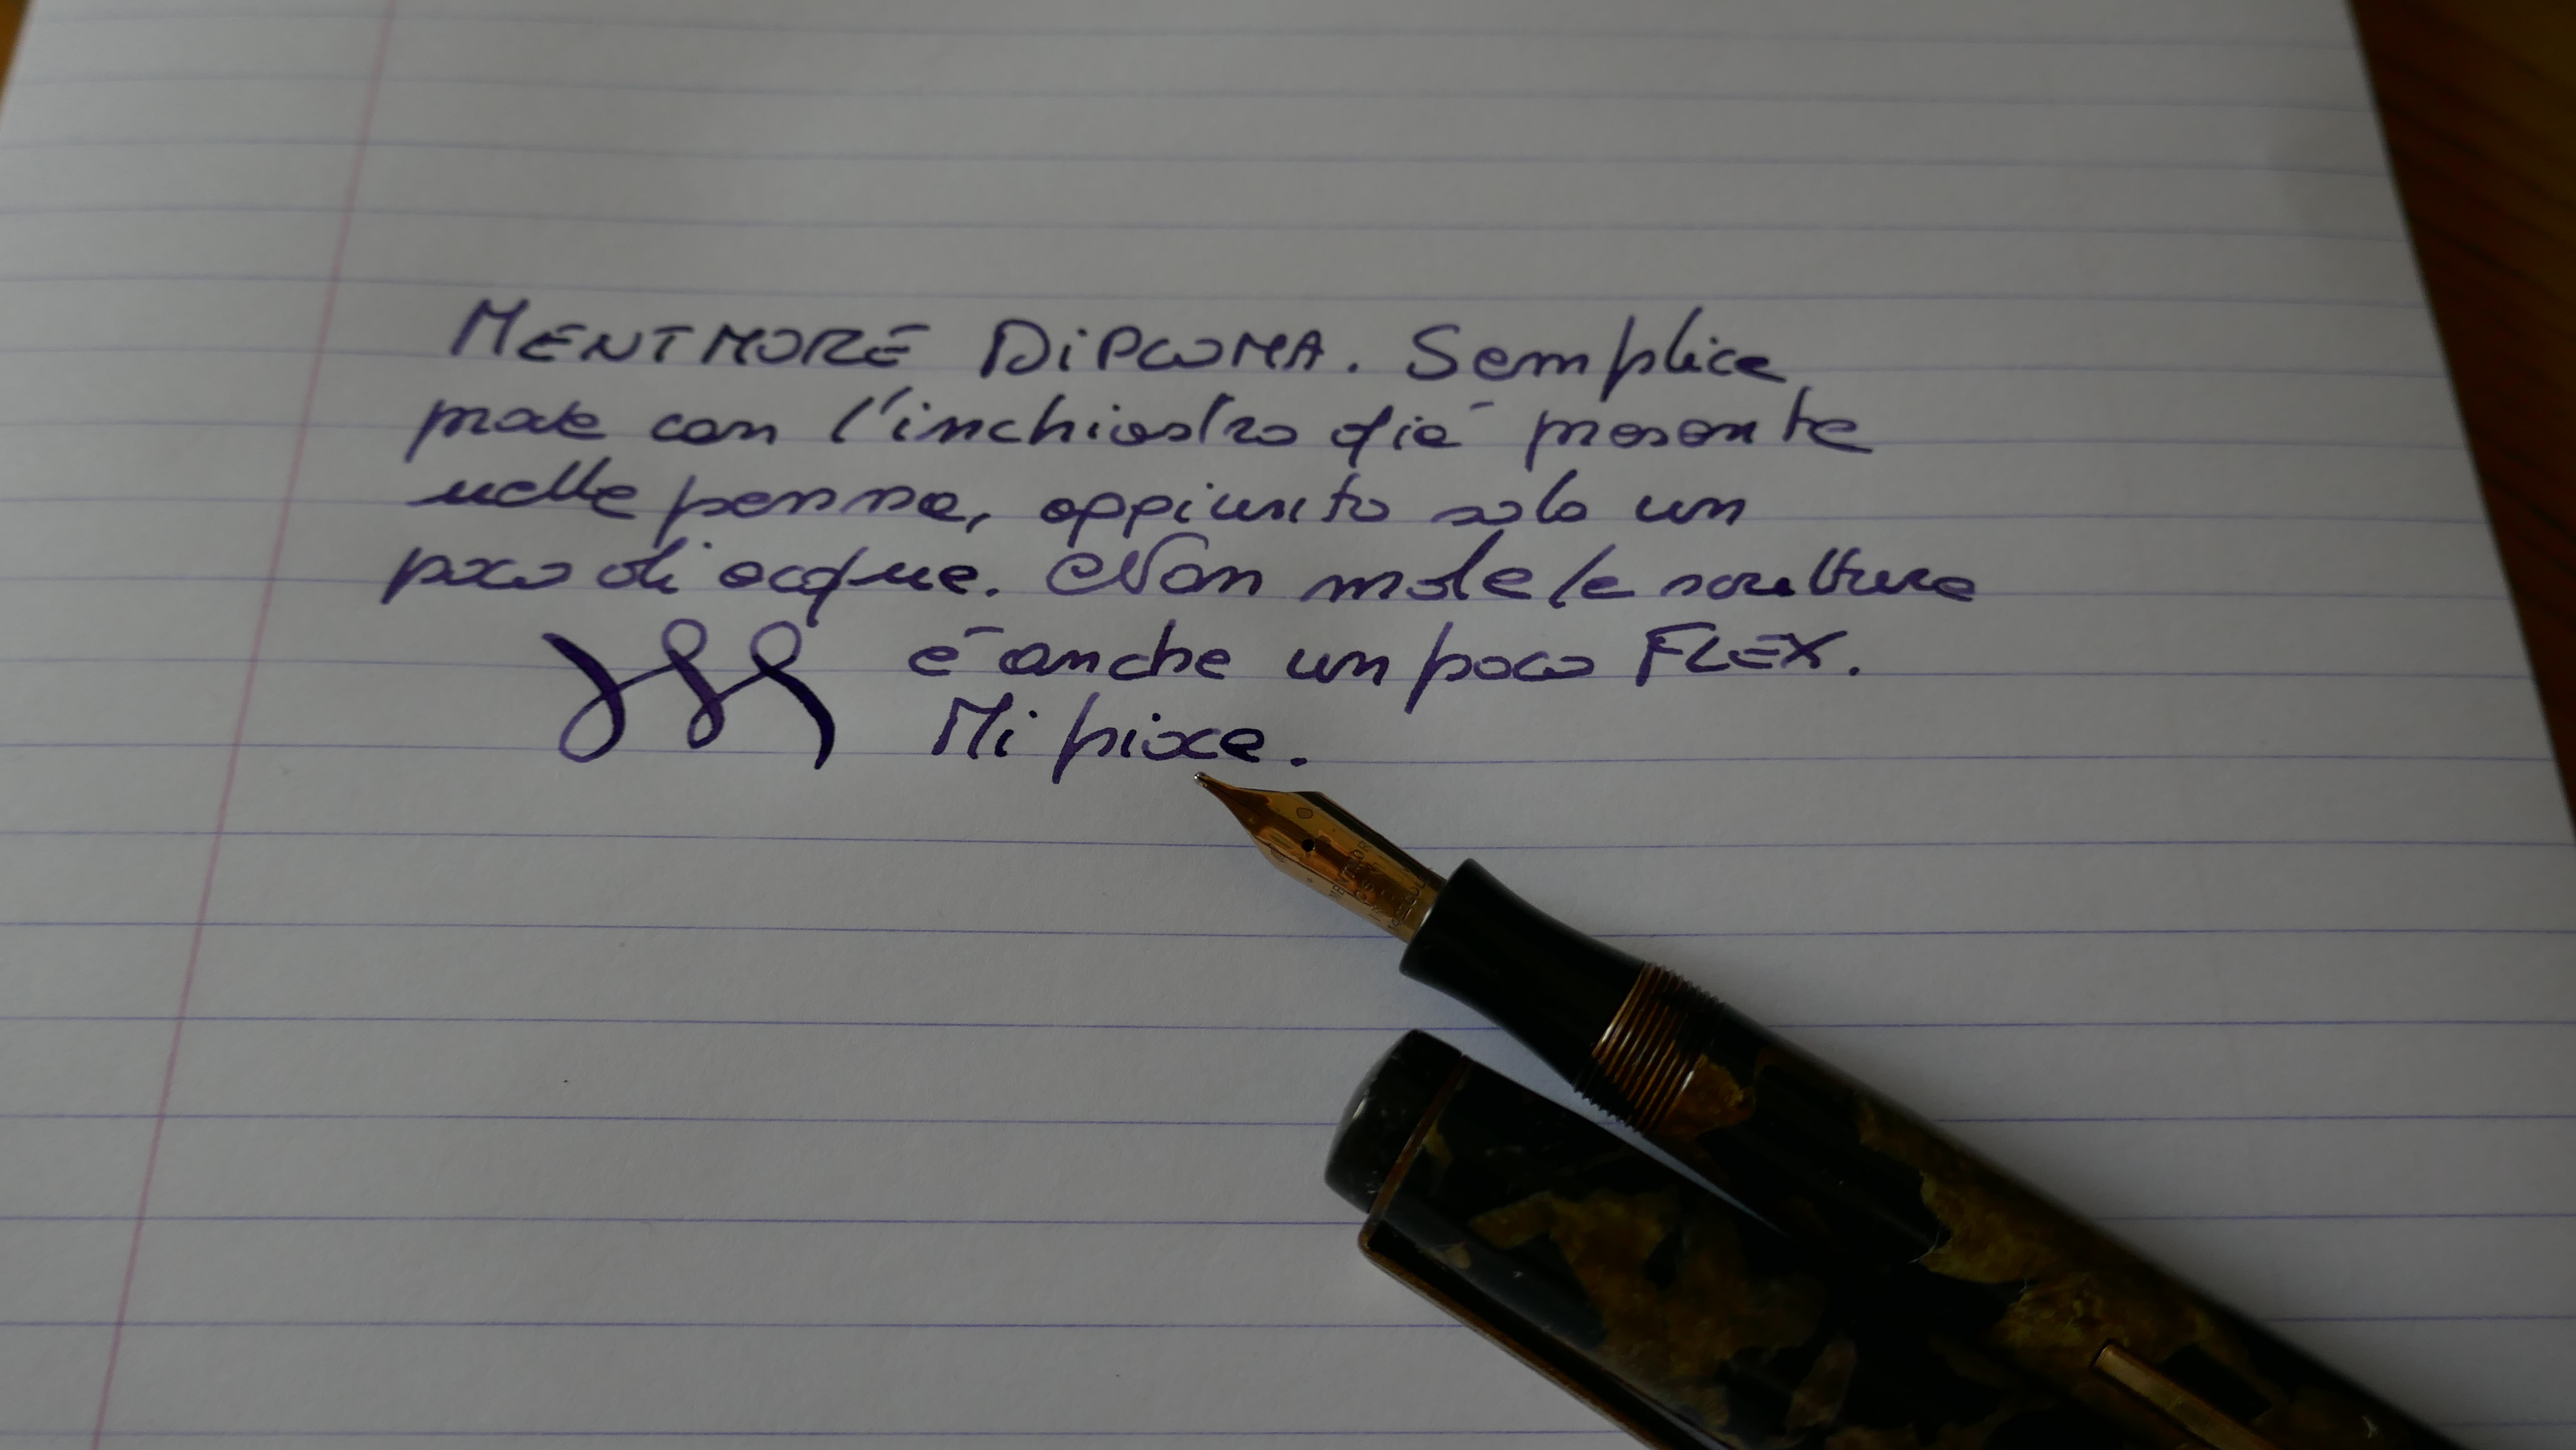 MENTMORE DiPLOMA. Semplice
prova con l'inchiostro già presente
nella penna, aggiunto solo un
poco di acqua. Non male la scrittura
è anche un poco FLEX.
Mi piace.